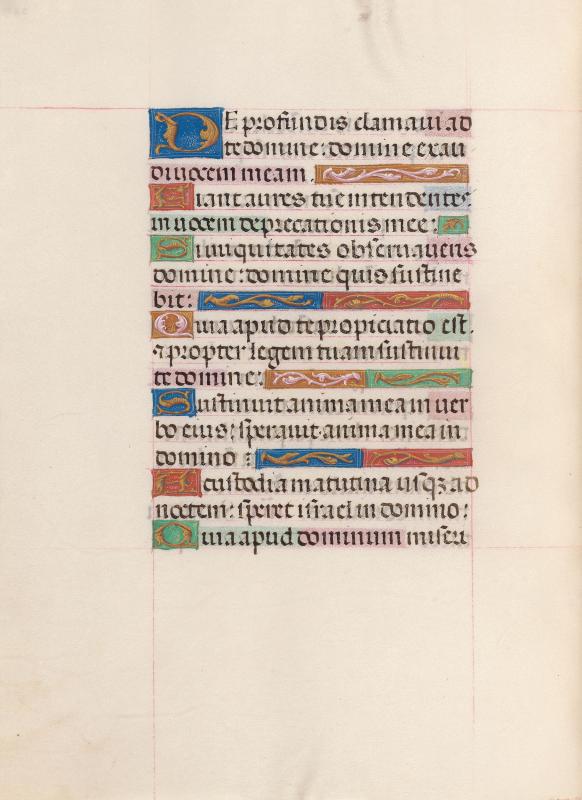 DE profundis clamaui ad
te domine: domine exau
di uocem meam.
Fiant aures tue intendentes
in uocem deprecationis mee:
Si iniquitates obseruaueris
domine: domine quis sustine
bit:
Quia apud te propiciatio est.
⁊ propter legem tuam sustinui
te domine:
Sustinuit anima mea in uer
bo eius: sperauit anima mea in
domino:
A custodia matutina usqꝫ ad
noctem: speret israel in domino:
Quia apud dominum miseri